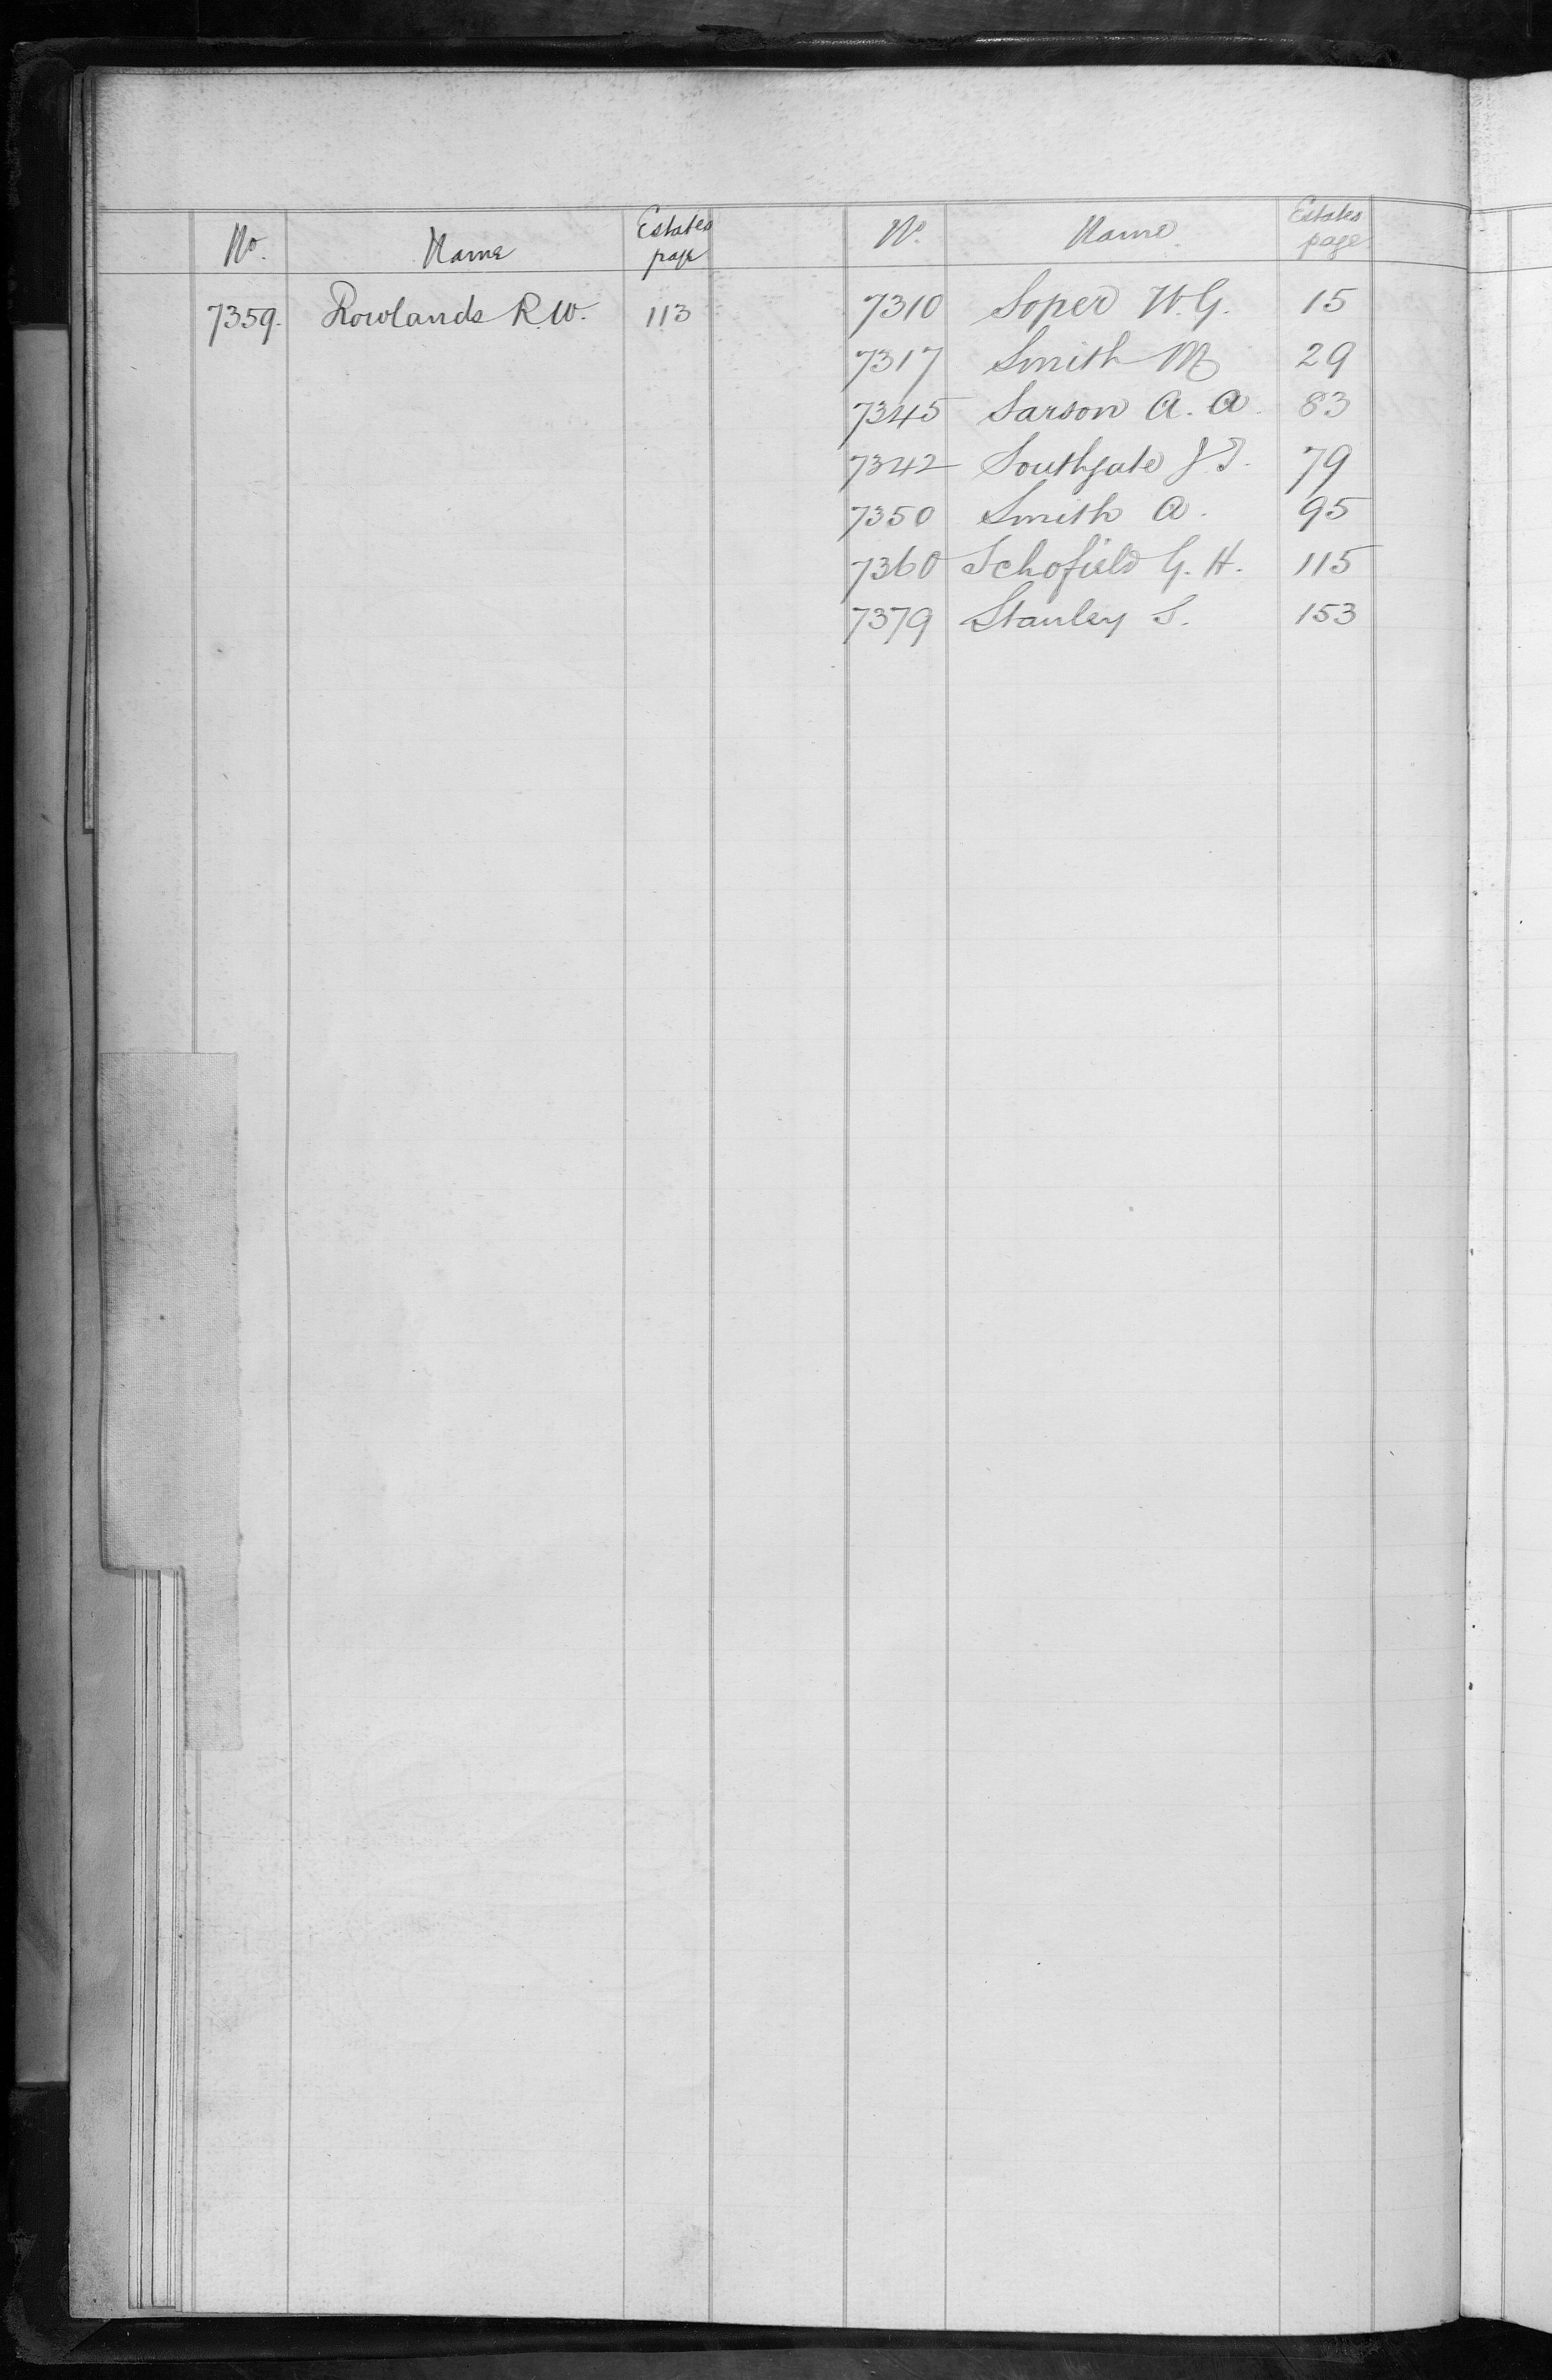 No. Name Estates page
7359. Rowlands R.W. 113
No. Name Estates page
7310 Soper W.G. 15
7317 Smith M 29
7345 Sarson A. A. 83
7342 Southgate J.T. 79
7350 Smith A. 95
7360 Schofield G. H. 115
7379 Stanley S. 153